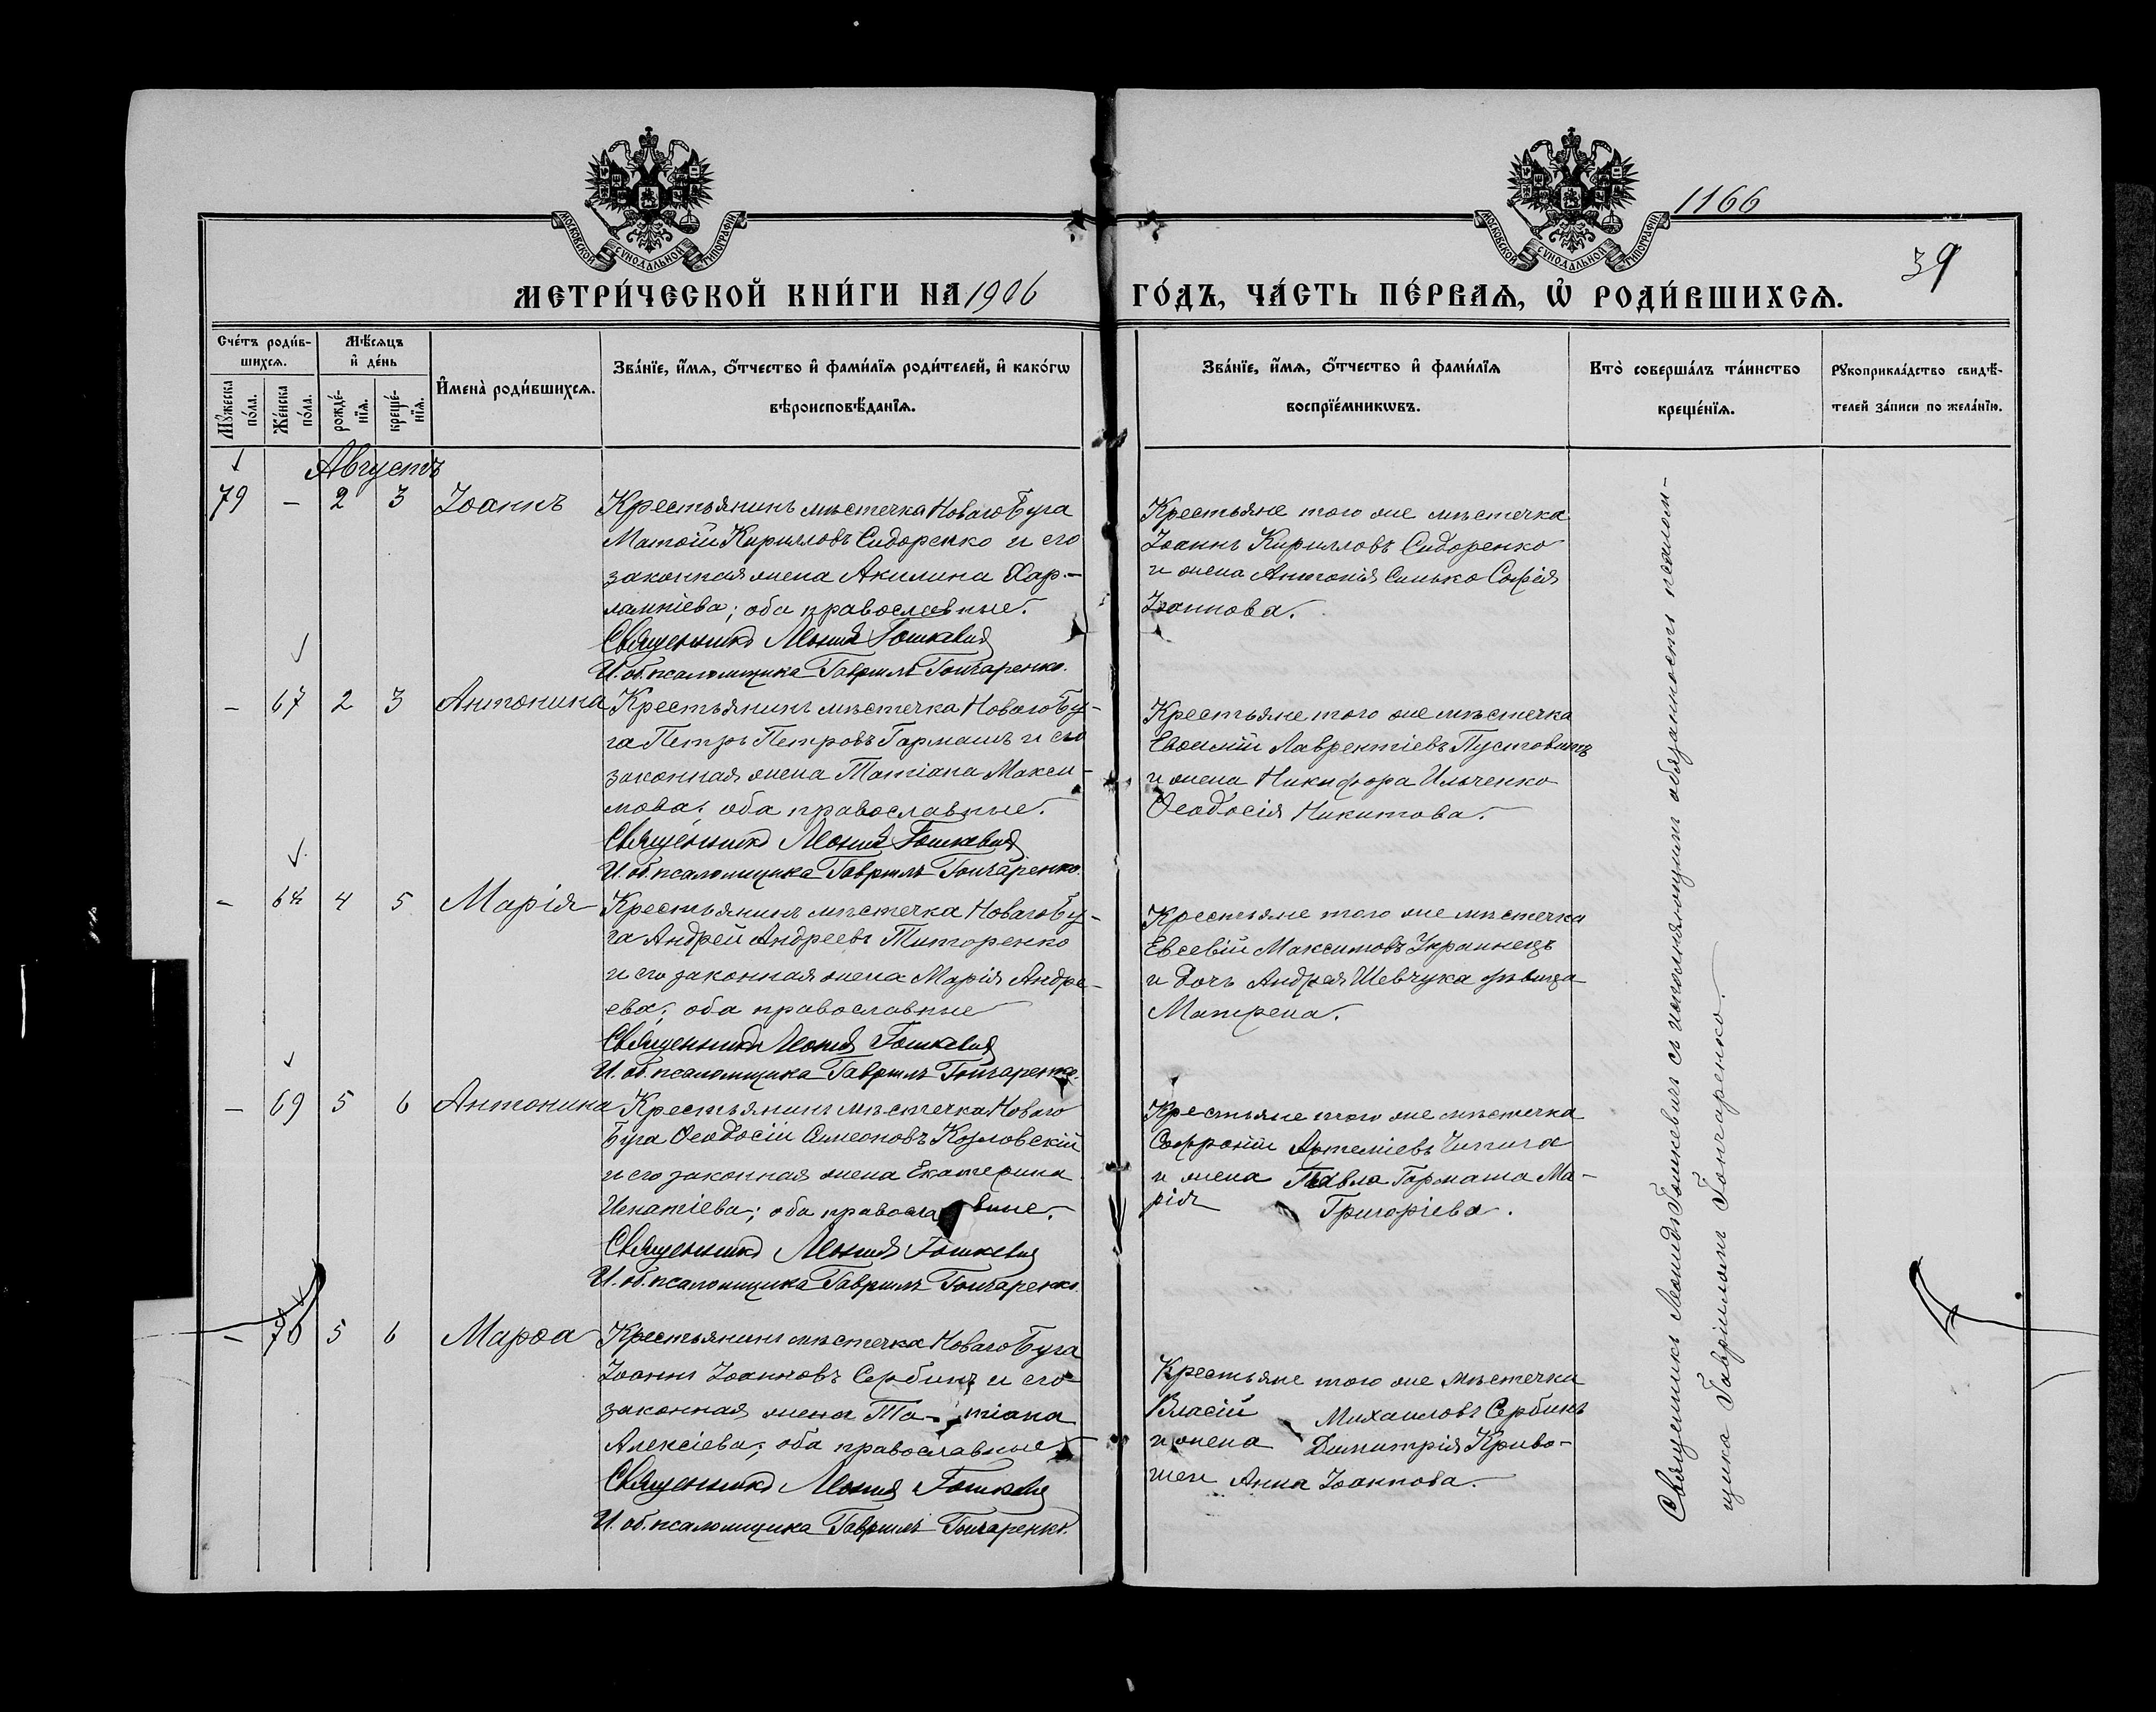 МОСКОВСКОЙ СѴНОДАЛЬНОЙ ТИПОГРАФІИ
МОСКОВСКОЙ СѴНОДАЛЬНОЙ ТИПОГРАФІИ
1166
39
МЕТРИ́ЧЕСКОЙ КНИ́ГИ НА 1906 ГО́ДЪ, ЧА́СТЬ ПЕ́РВАѦ, Ѡ҆ РОДИ́ВШИХСѦ.
Сче́тъ роди́в-
шихсѧ.
Мꙋ́жеска по́ла.
Же́нска по́ла.
Мѣ́сѧцъ
и҆ де́нь
рожде́-
нїѧ.
креще́-
нїѧ.
И҆мена̀ роди́вшихсѧ.
Зва́нїе, и҆́мѧ, ѻ҆́тчество и҆ фами́лїѧ роди́телей, и҆ како́гѡ
вѣроисповѣ́данїѧ.
Зва́нїе, и҆́мѧ, ѻ҆́тчество и҆ фами́лїѧ
воспрїе́мникѡвъ.
Кто̀ соверша́лъ та́инство
креще́нїѧ.
Рꙋкоприкла́дство свидѣ́-
телей за́писи по жела́нїю.
Августъ
79 – 2 3 Іоаннъ
Крестьянинъ мѣстечка Новаго Буга
Матѳій Кирилловъ Сидоренко и его
законная жена Акилина Хар-
лампіева; оба православные.
Священникъ Леонидъ Гошкевичъ
И. об. псаломщика Гавріилъ Гончаренко.
Крестьяне того же мѣстечка
Іоаннъ Кирилловъ Сидоренко
и жена Антонія Синько Софія
Іоаннова.
– 67 2 3 Антонина
Крестьянинъ мѣстечка Новаго Бу-
га Петръ Петровъ Гармашъ и его
законная жена Татіана Макси-
мова; оба православные.
Священникъ Леонидъ Гошкевичъ
И. об. псаломщика Гавріилъ Гончаренко.
Крестьяне того же мѣстечка
Евѳимій Лаврентіевъ Пустовитъ
и жена Никифора Ильченко
Ѳеодосія Никитова.
– 68 4 5 Марія
Крестьянинъ мѣстечка Новаго Бу-
га Андрей Андреевъ Титоренко
и его законная жена Марія Андре-
ева; оба православные
Священникъ Леонидъ Гошкевичъ
И. об. псаломщика Гавріилъ Гончаренко.
Крестьяне того же мѣстечка
Евсевій Максимовъ Украинецъ
и дочь Андрея Шевчука дѣвица
Матрена.
– 69 5 6 Антонина
Крестьянинъ мѣстечка Новаго
Буга Ѳеодосій Симеоновъ Козловскій
и его законная жена Екатерина
Игнатіева; оба православные.
Священникъ Леонидъ Гошкевичъ
И. об. псаломщика Гавріилъ Гончаренко.
Крестьяне того же мѣстечка
Софроній Артеміевъ Чипига
и жена Павла Гармаша Ма-
рія Григоріева.
– 70 5 6 Марѳа
Крестьянинъ мѣстечка Новаго Буга
Іоаннъ Іоанновъ Сербинъ и его
законная жена Та- тіана
Алексіева; оба православные
Священникъ Леонидъ Гошкевичъ
И. об. псаломщика Гавріилъ Гончаренко.
Крестьяне того же мѣстечка
Власій Михаиловъ Сербинъ
и жена Димитрія Криво-
шеи Анна Іоаннова.
Священникъ Леонидъ Гошкевичъ съ исполняющимъ обязанность псалом-
щика Гавріиломъ Гончаренко.